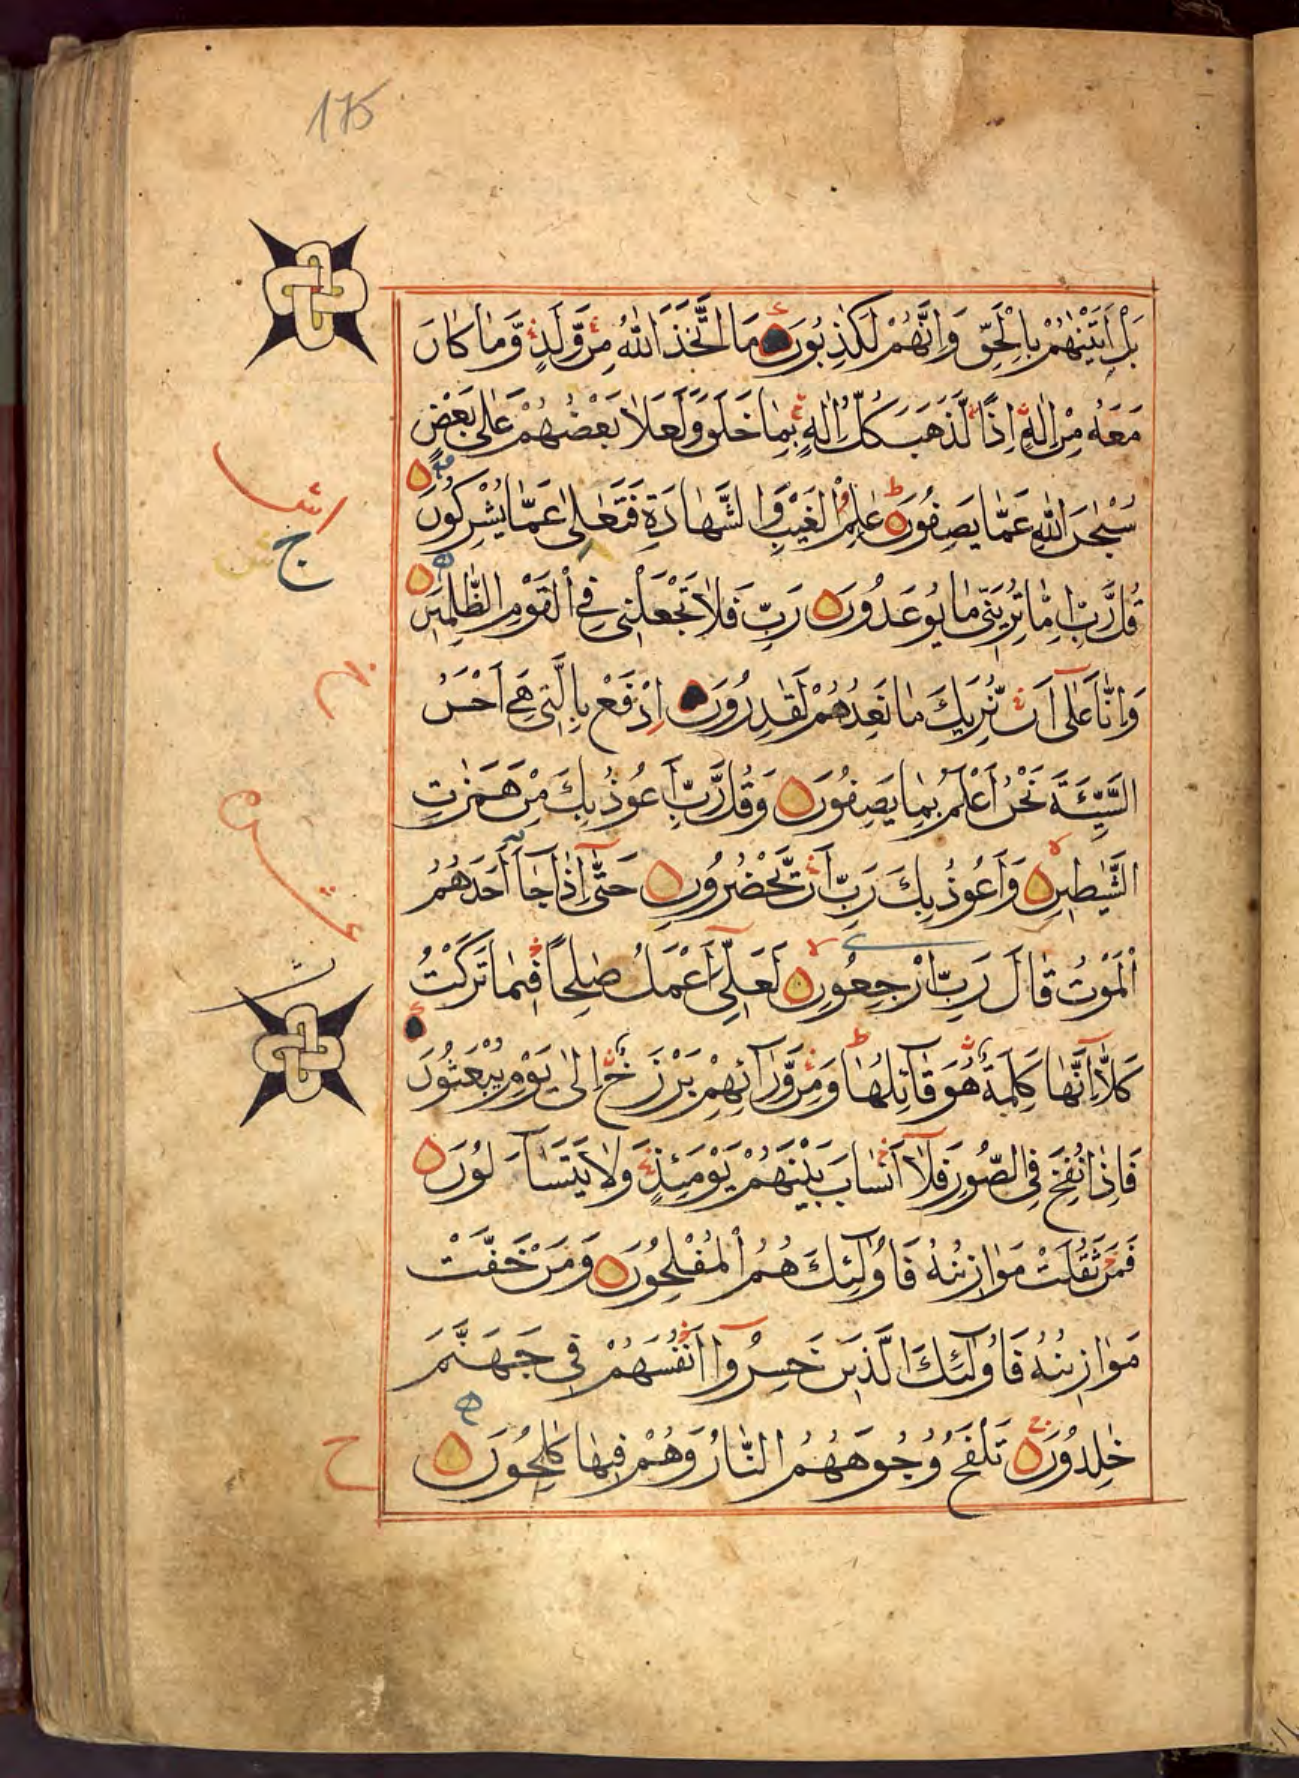 175
بَلْ اَتَيْنٰهُمْ بِالْحَقِّ وَاِنَّهُمْ لَكٰذِبُوْنَ مَا اتَّخَذَ اللّٰهُ مِنْ وَّلَدٍ وَّمَا كَانَ
مَعَهٗ مِنْ اِلٰهٍ اِذًا لَّذَهَبَ كُلُّ اِلٰهٍ بِمَا خَلَقَ وَلَعَلَا بَعْضُهُمْ عَلٰى بَعْضٍ
سُبْحٰنَ اللّٰهِ عَمَّا يَصِفُوْنَ عٰلِمِ الْغَيْبِ وَالشَّهَادَةِ فَتَعٰلٰى عَمَّا يُشْرِكُوْنَ
قُلْ رَّبِّ اِمَّا تُرِيَنِّيْ مَا يُوْعَدُوْنَ رَبِّ فَلَا تَجْعَلْنِيْ فِي الْقَوْمِ الظّٰلِمِيْنَ
وَاِنَّا عَلٰٓى اَنْ نُّرِيَكَ مَا نَعِدُهُمْ لَقٰدِرُوْنَ اِدْفَعْ بِالَّتِيْ هِيَ اَحْسَنُ
السَّيِّئَةَ نَحْنُ اَعْلَمُ بِمَا يَصِفُوْنَ وَقُلْ رَّبِّ اَعُوْذُ بِكَ مِنْ هَمَزٰتِ
الشَّيٰطِيْنِ وَاَعُوْذُ بِكَ رَبِّ اَنْ يَّحْضُرُوْنِ حَتّٰٓى اِذَا جَآءَ اَحَدَهُمُ
الْمَوْتُ قَالَ رَبِّ ارْجِعُوْنِ لَعَلِّيْٓ اَعْمَلُ صٰلِحًا فِيْمَا تَرَكْتُ
كَلَّآ اِنَّهَا كَلِمَةٌ هُوَ قَآئِلُهَا وَمِنْ وَّرَآئِهِمْ بَرْزَخٌ اِلٰى يَوْمِ يُبْعَثُوْنَ
فَاِذَا نُفِخَ فِي الصُّوْرِ فَلَآ اَنْسَابَ بَيْنَهُمْ يَوْمَئِذٍ وَّلَا يَتَسَآءَلُوْنَ
فَمَنْ ثَقُلَتْ مَوَازِيْنُهٗ فَاُولٰٓئِكَ هُمُ الْمُفْلِحُوْنَ وَمَنْ خَفَّتْ
مَوَازِيْنُهٗ فَاُولٰٓئِكَ الَّذِيْنَ خَسِرُوْٓا اَنْفُسَهُمْ فِيْ جَهَنَّمَ
خٰلِدُوْنَ تَلْفَحُ وُجُوْهَهُمُ النَّارُ وَهُمْ فِيْهَا كٰلِحُوْنَ